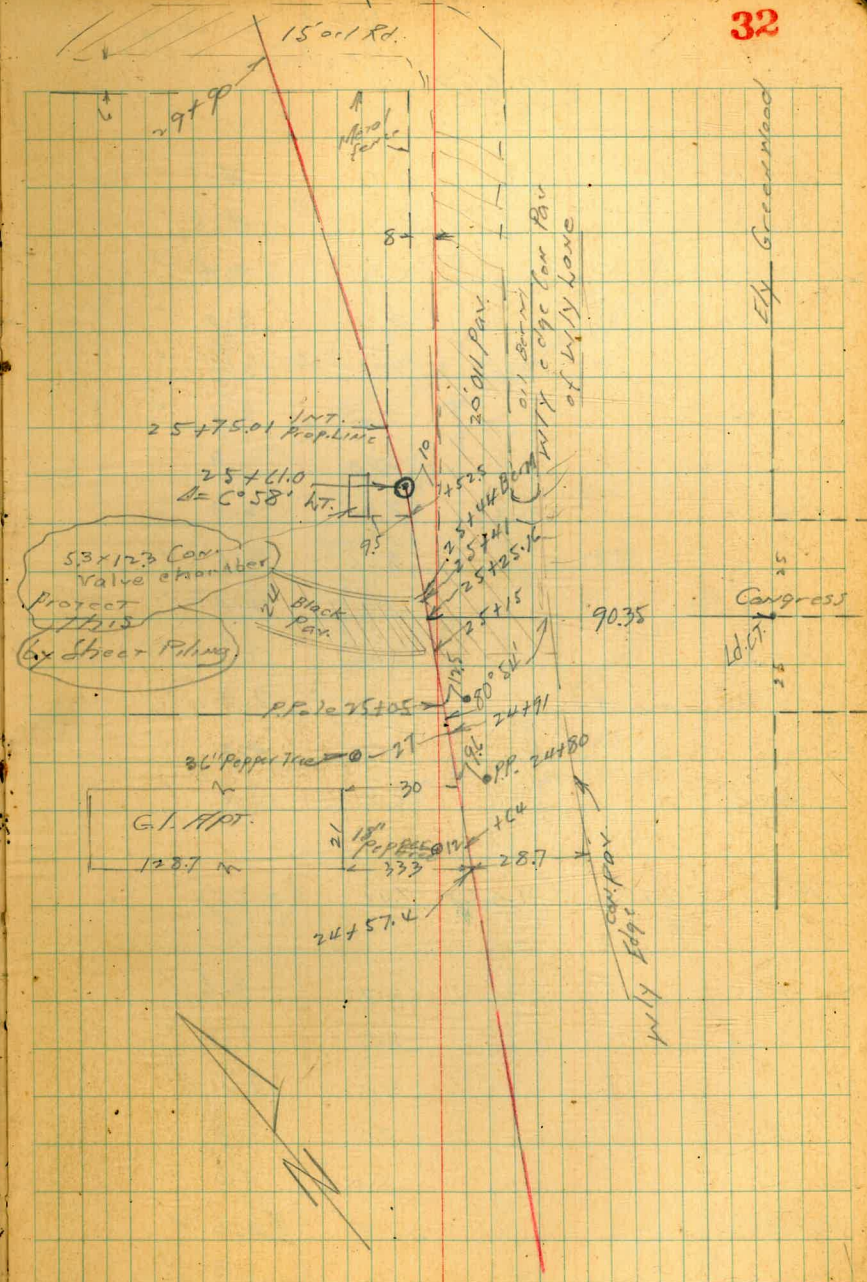 32
15' oil Rd.
29+90
8
Ely Greenwood
20' Oil Pav.
Oil Berm
Wly edge Con Pav
of Wly Lane
25+75.01 INT.
Prop. Line
10
25+61.0
Δ= 6°58' LT.
+52.5
9.5
25+44 Berm
25+41
25+25.16
25+15
5.3 x 12.3 Con.
Valve chamber
Project
This
6x Sheet Piling
24
Black
Pav.
90.35
25
Congress
Ld. CT.
25
12.5
80° 54'
P. Pole 25+05
24+91
27
36" Pepper Tree
19.6
P.P. 24+80
30
G.I. Apt.
21
18"
Pepper
12
+64
128.7
33.3
28.7
24+57.4
Con. Pav.
Wly Edge
N